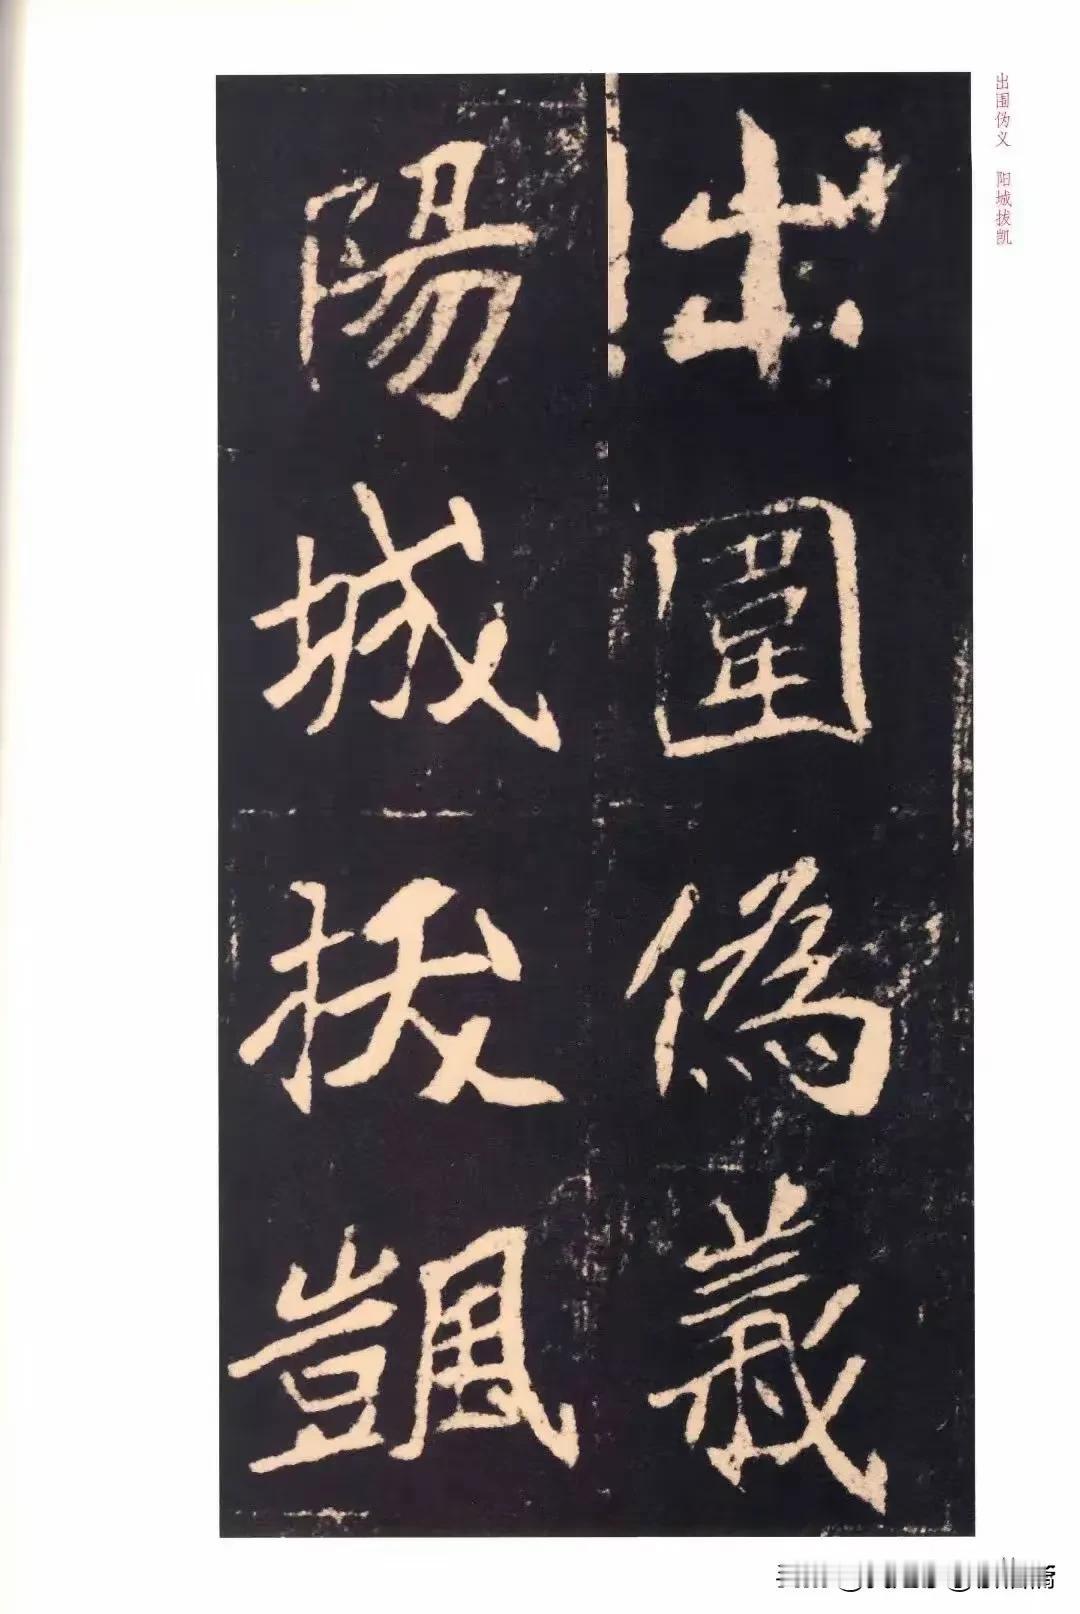 出围伪义　阳城拔凯
出圍偽義
陽城拔颽